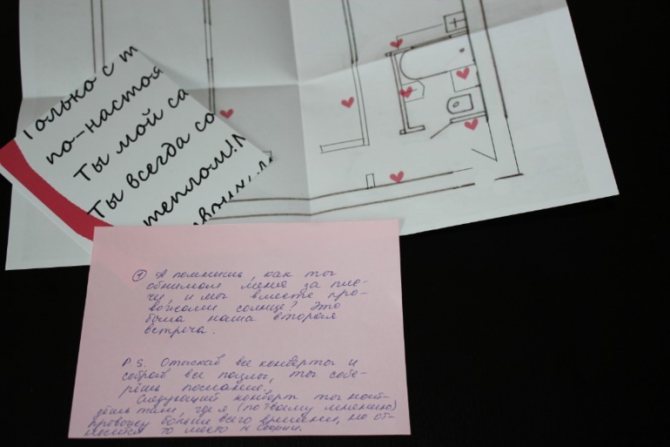 Только с т
по-настоя
Ты мой са
Ты всегда со
теплом!
① А помнишь, как ты
обнимал меня за пле-
чи, и мы вместе про-
вожали солнце? Это
была наша вторая
встреча.
P.S. Отыскав все конверты и
собрав все пазлы, ты собе-
рёшь послание.
Следующий конверт ты най-
дёшь там, где я (по твоему мнению)
провожу больше всего времени, не от-
то место и